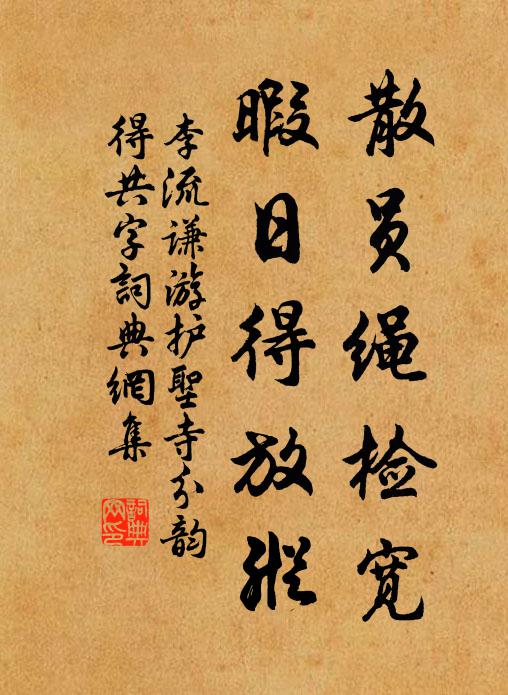 散员绳检宽
暇日得放纵
李流谦游护聖寺分韵
得共字詞典網集
詞典
网印